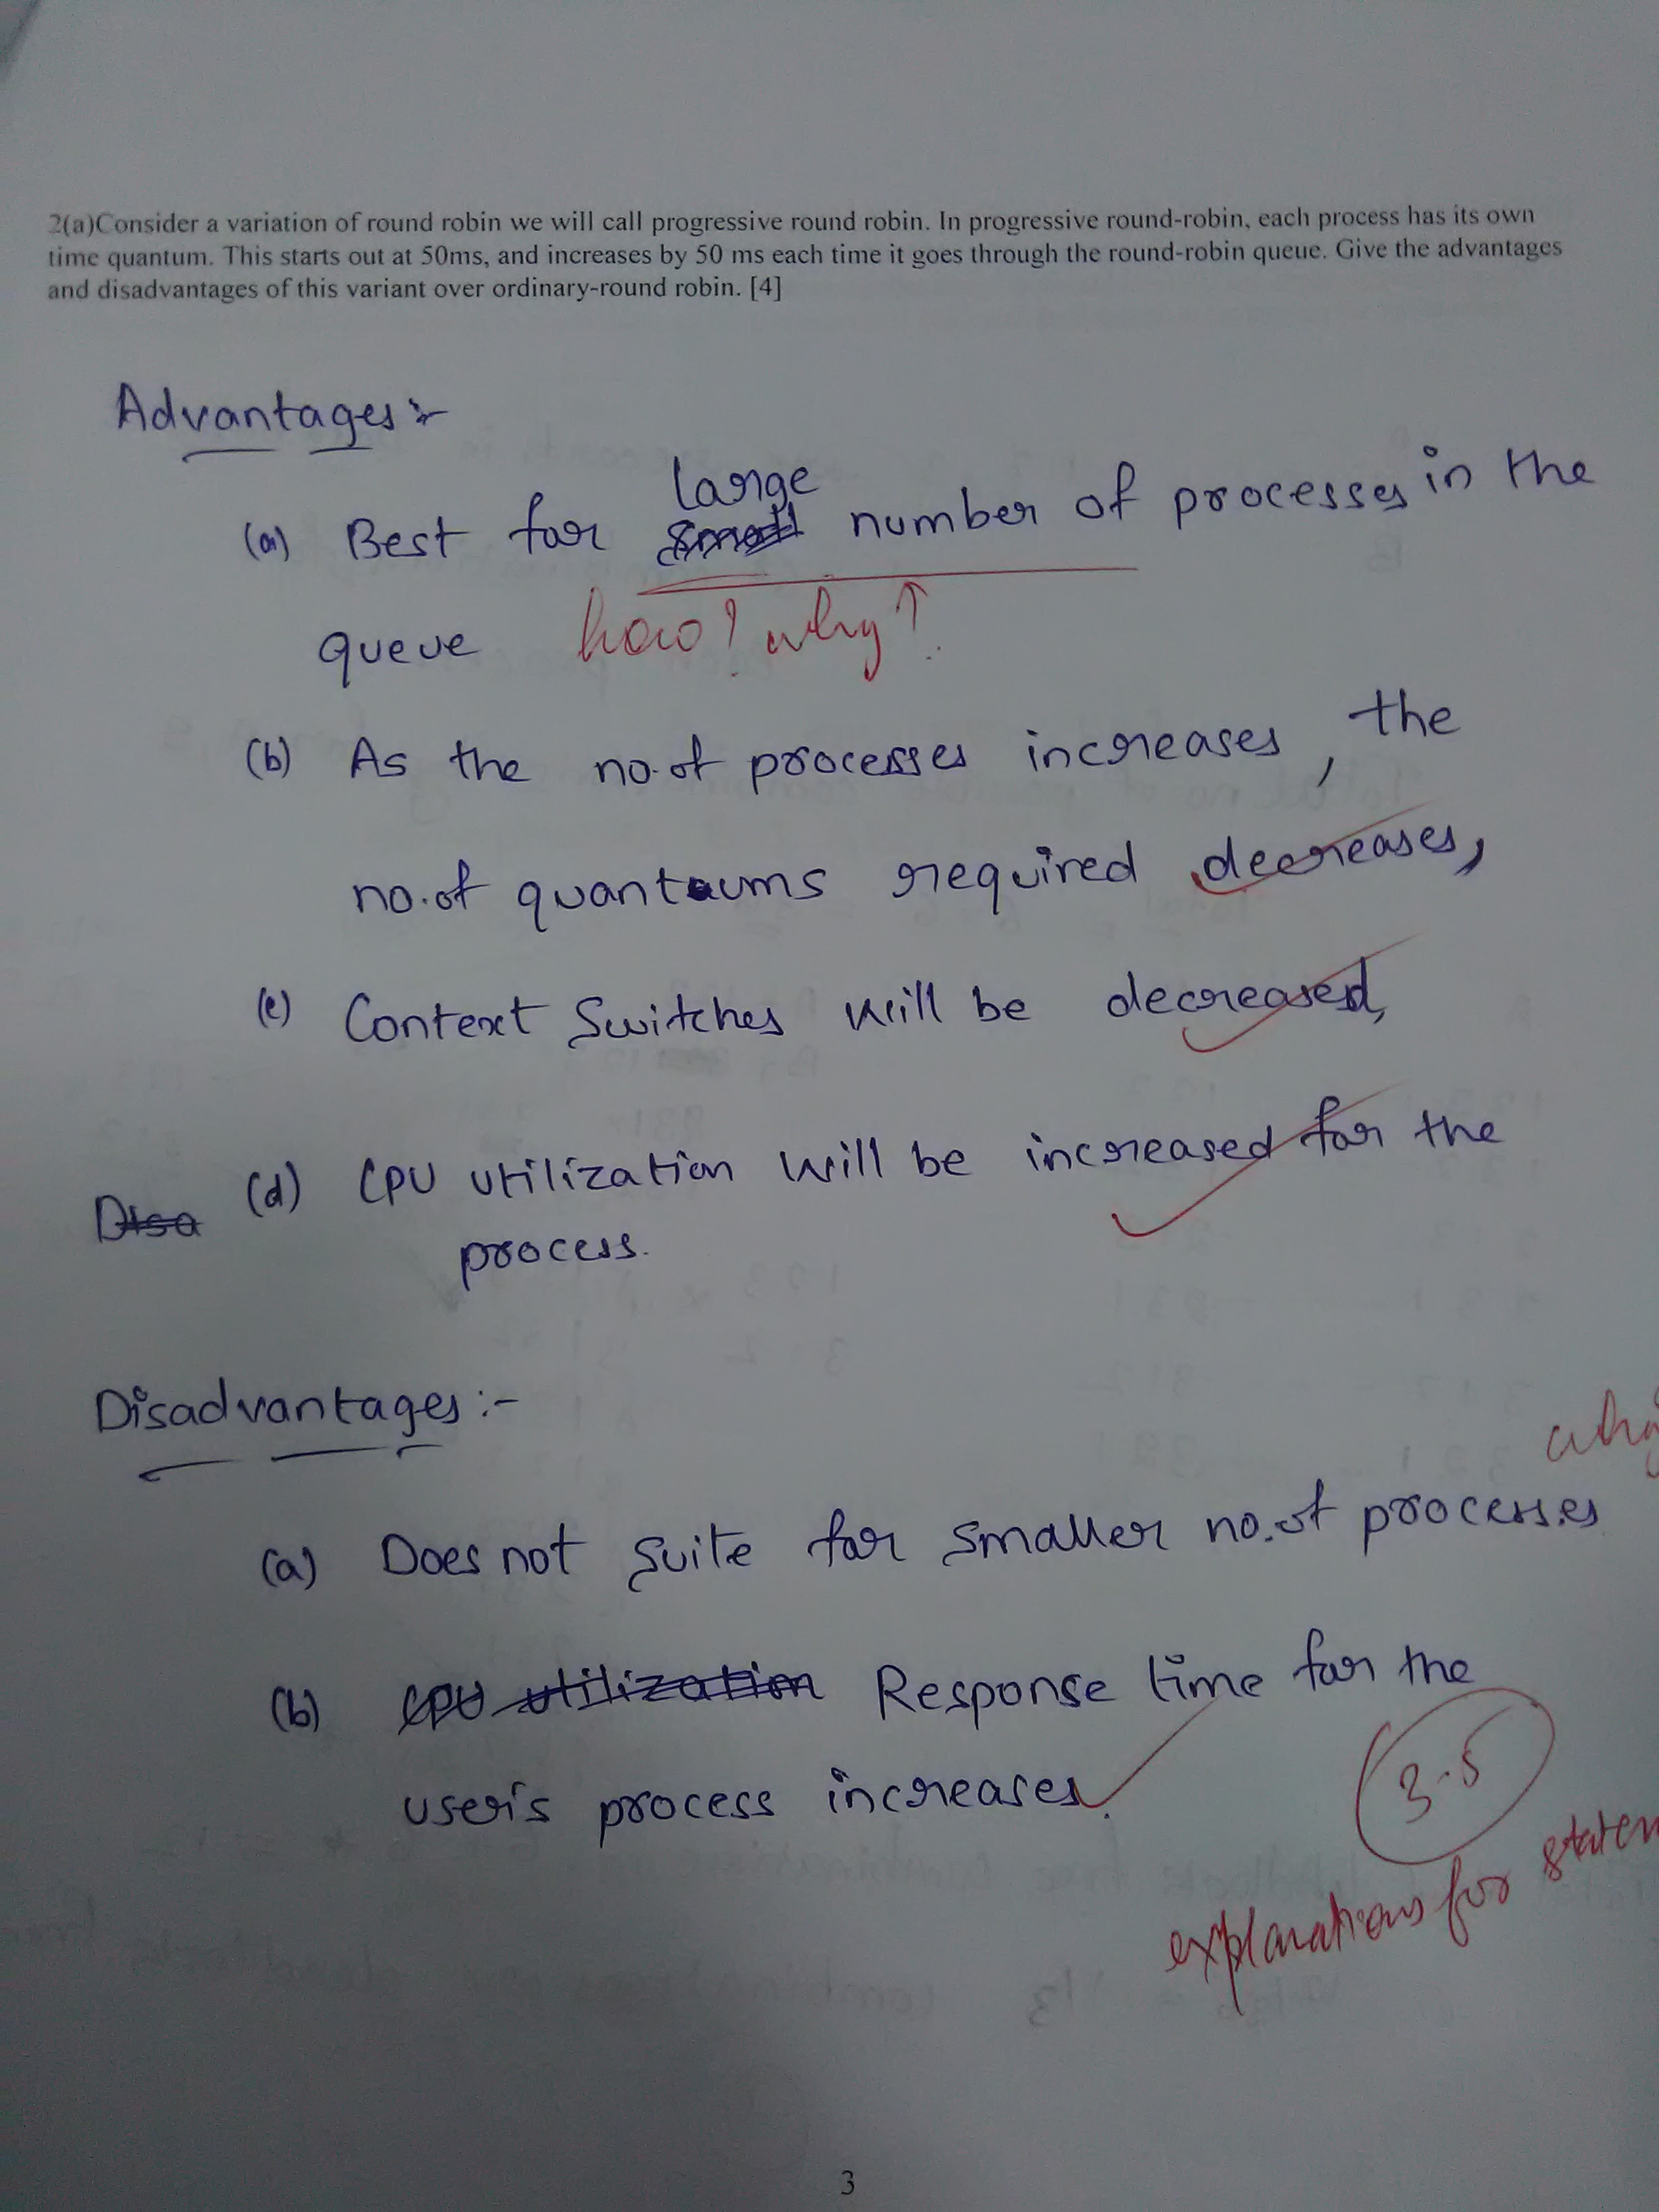 2(a)Consider a variation of round robin we will call progressive round robin. In progressive round-robin, each process has its own
time quantum. This starts out at 50ms, and increases by 50 ms each time it goes through the round-robin queue. Give the advantages
and disadvantages of this variant over ordinary-round robin. [4]
Advantages:-
large
(a) Best for small number of processes in the
queue how? why?
(b) As the no.of processes increases, the
no.of quantums required decreases,
(c) Context Switches will be decreased,
Disa (d) CPU utilization will be increased for the
process.
Disadvantages:-
why
(a) Does not suite for smaller no.of processes
(b) CPU utilization Response time for the
user's process increases.
3.5
explanations for statem
3